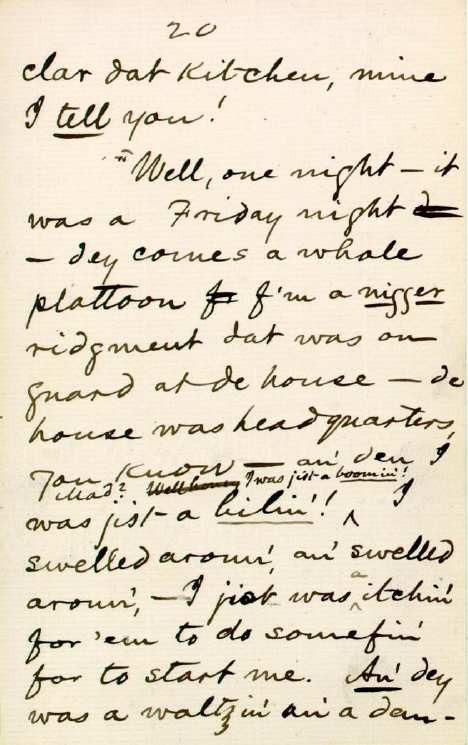 20
clar dat kitchen, mine
I tell you!
"Well, one night — it
was a Friday night
— dey comes a whole
plattoon f'm a nigger
ridgment dat was on
guard at de house — de
house was headquarters,
you know — an' den I
Mad? Well honey I was jist a boomin'!
was jist a bilin'! I
swelled aroun', an' swelled
aroun', — I jist was a itchin'
for 'em to do somefin'
for to start me. An' dey
was a waltzin' an' a dan-